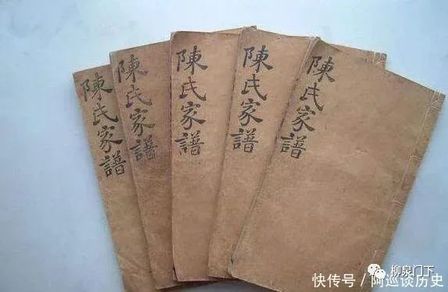 陳氏家譜
陳氏家譜
陳氏家譜
陳氏家譜
陳氏家譜
柳泉门下
快传号/阿巡谈历史